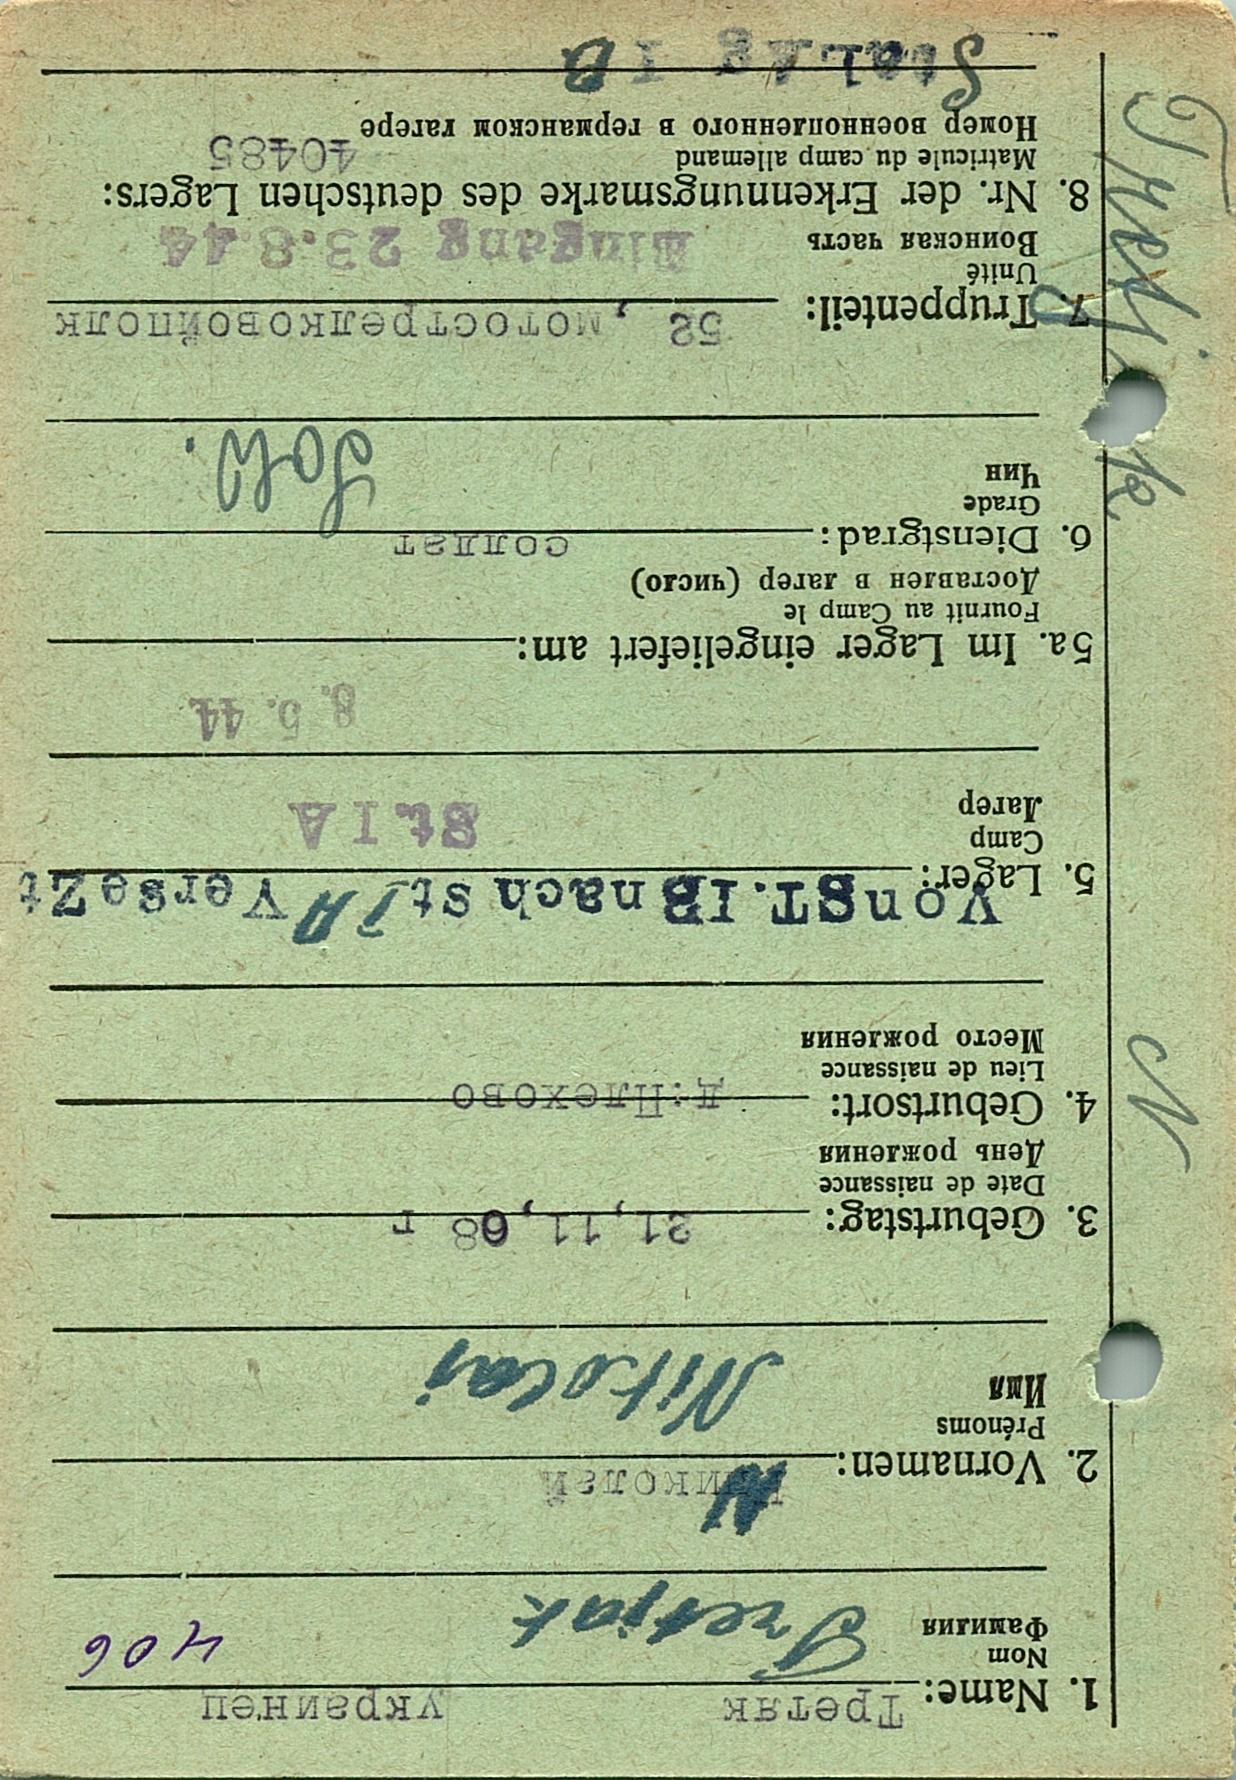 Третяк украинец
1. Name:
Nom
Фамилия
Tretjak 406
Николай
N
2. Vornamen:
Prénoms
Имя
Nikolai
21,11,08 г
3. Geburtstag:
Date de naissance
День рождения
д:Плехово
4. Geburtsort:
Lieu de naissance
Место рождения
Von ST. IB nach St IA Versezt
5. Lager:
Camp
Лагер
St. IA
8. 5. 44
5a. Im Lager eingeliefert am:
Fournit au Camp le
Доставлен в лагер (число)
солдат
6. Dienstgrad:
Grade
Чин
Sold.
52, мотострелковойполк
7. Truppenteil:
Unité
Воинская часть
Eingang 23.8.44
8. Nr. der Erkennungsmarke des deutschen Lagers:
Matricule du camp allemand 40485
Номер военнопленного в германском лагере
Stalag I B
N Tretjak